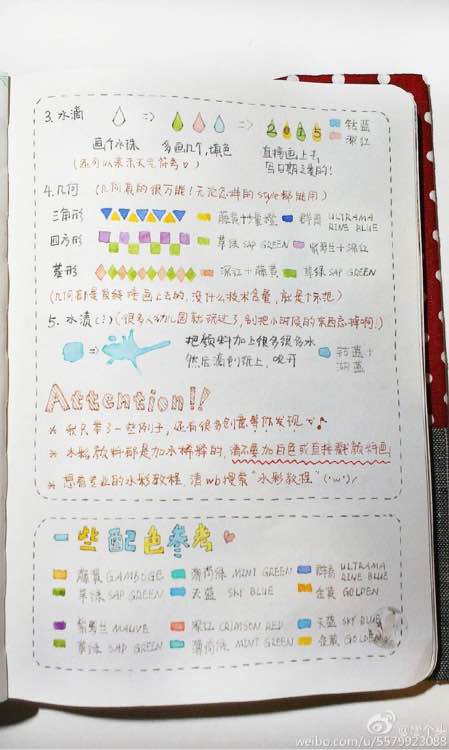 3. 水滴 => => 2015 钴蓝
深红
画个水珠 多画几个,填色 直接画上去,
写日期之类的!
4. 几何 (几何真的很万能!无论怎样的style都能用)
三角形 藤黄+橙 群青 ULTRAMA
RINE BLUE
四方形 草绿 SAP GREEN 紫罗兰+深红
菱形 深红+藤黄 草绿 SAP GREEN
(几何都是直接画上去的,没什么技术含量,就是个示范)
5. 水渍(:)(很多人幼儿园就玩过了,别把小时候的东西忘掉啊!)
=> 把颜料加上很多很多水 钴蓝+
然后滴到纸上,吹开 湖蓝
Attention!!
* 我只写了一些例子,还有很多创意等你发现♪
* 水彩颜料都是加水稀释的,请不要加白色或直接戳颜料画
* 想看专业的水彩教程,请wb搜索"水彩教程"(·w·)/
一些配色参考
藤黄 GAMBOGE 薄荷绿 MINT GREEN 群青 ULTRAMA
RINE BLUE
草绿 SAP GREEN 天蓝 SKY BLUE 金黄 GOLDEN
紫罗兰 MAUVE 深红 CRIMSON RED 天蓝 SKY BLUE
草绿 SAP GREEN 薄荷绿 MINT GREEN 金黄 GOLDEN
weibo.com/u/5579923088